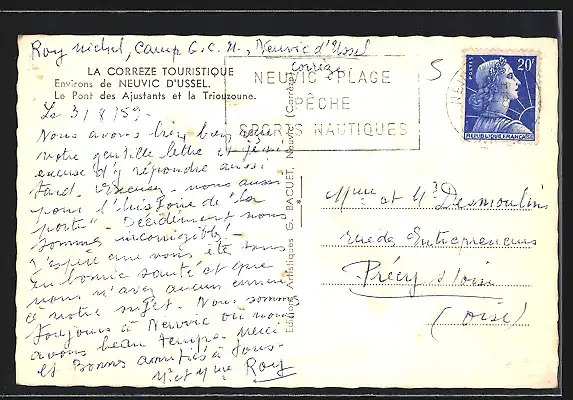 Roy Michel, Camp G.C.U., Neuvic d'Ussel
Corrèze
LA CORREZE TOURISTIQUE
Environs de NEUVIC D'USSEL.
Le Pont des Ajustants et la Triouzoune.
NEUVIC PLAGE
PÊCHE
SPORTS NAUTIQUES
5
POSTES
20F
REPUBLIQUE FRANÇAISE
Le 3/8/59.
Nous avons bien bien reçu
votre gentille lettre et
excuse d'y répondre aussi
tard. Excusez-nous aussi
pour l'histoire de "la
porte". Décidément nous
sommes incorrigibles!
J'espère que vous êtes tous
en bonne santé et que
nous n'avez aucun ennui
à notre sujet. Nous sommes
toujours à Neuvic où nous
avons beau temps. Merci
et Bonnes amitiés à tous.
Mr et Mme Roy
Editions Artistiques G. BACUET, Neuvic (Corrèze)
Mme et Mr Desmoulins
rue des Entrepreneurs
Précy s/ Oise
(Oise)